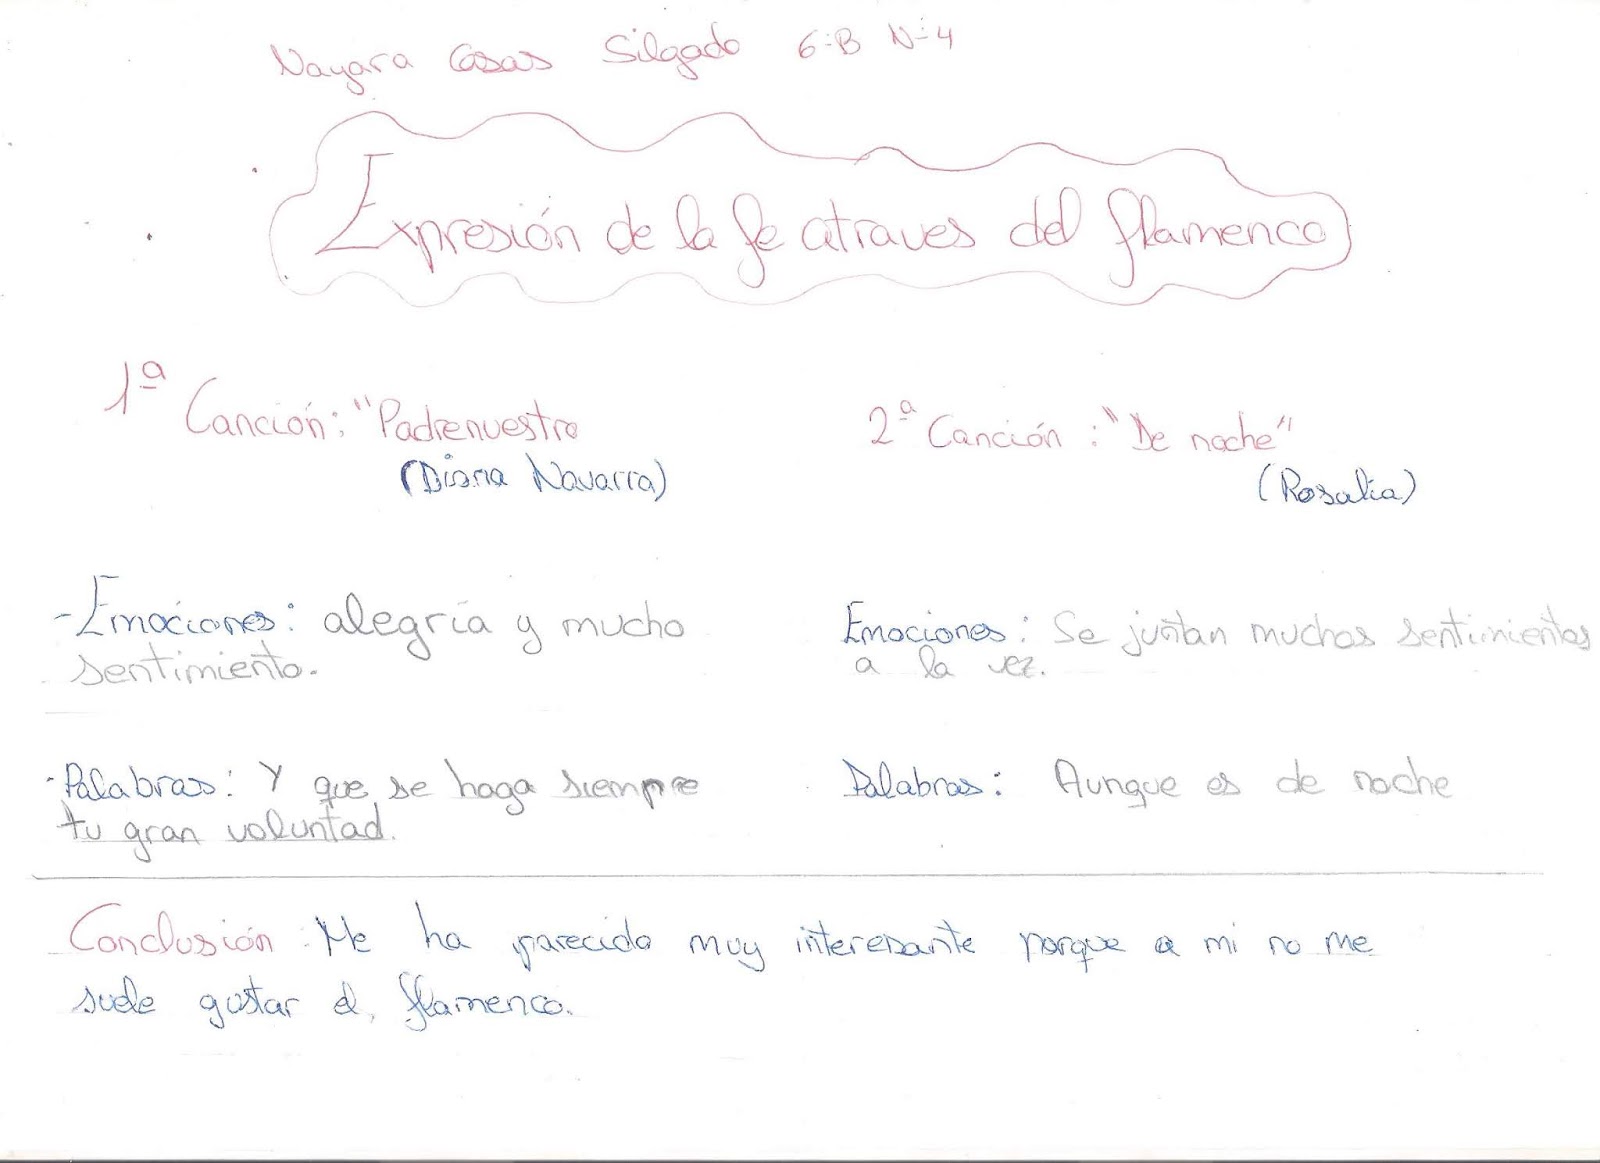 Nayara Casas Silgado 6ºB Nº4
Expresión de la fe atraves del flamenco
1ª Canción: "Padrenuestro
(Diana Navarra)
2ª Canción : "De noche"
(Rosalía)
-Emociones: alegría y mucho
sentimiento.
Emociones: Se juntan muchos sentimientos
a la vez.
-Palabras: Y que se haga siempre
tu gran voluntad.
Palabras: Aunque es de noche
Conclusión: Me ha parecido muy interesante porque a mi no me
suele gustar el flamenco.